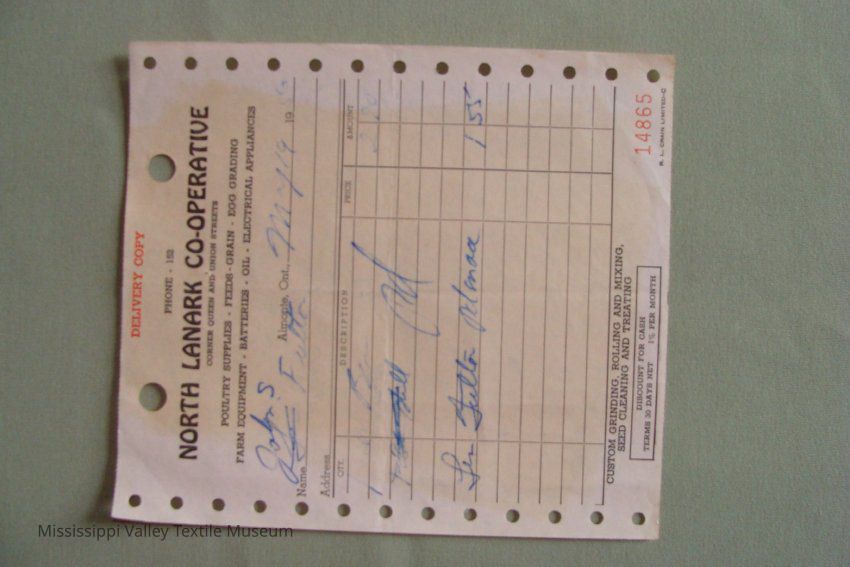 DELIVERY COPY
PHONE - 152
NORTH LANARK CO-OPERATIVE
CORNER QUEEN AND UNION STREETS
POULTRY SUPPLIES - FEEDS - GRAIN - EGG GRADING
FARM EQUIPMENT - BATTERIES - OIL - ELECTRICAL APPLIANCES
Almonte, Ont., May 19 19
Name John S Fulton
Address
QTY. DESCRIPTION PRICE AMOUNT
Fulton 1 55
CUSTOM GRINDING, ROLLING AND MIXING,
SEED CLEANING AND TREATING
DISCOUNT FOR CASH
TERMS 30 DAYS NET 1% PER MONTH
14865
R. L. CRAIN LIMITED-C
Mississippi Valley Textile Museum